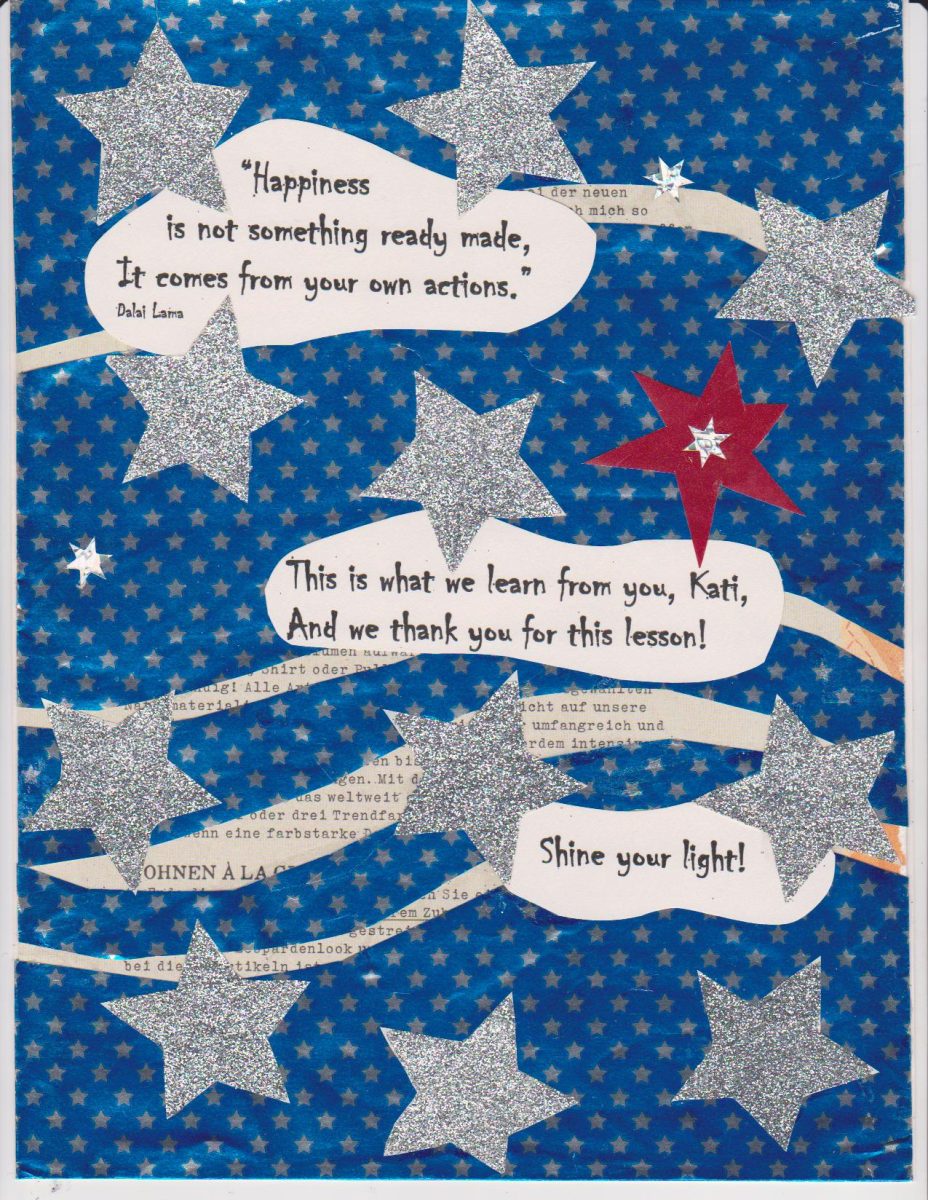 "Happiness
is not something ready made,
It comes from your own actions."
Dalai Lama
bei der neuen
mich so
This is what we learn from you, Kati,
And we thank you for this lesson!
Shirt oder
Alle
material
icht auf unsere
umfangreich und
intensi
en bis
gen. Mit d
das weltweit
oder drei Trendfar
enn eine farbstarke
OHNEN À LA
Shine your light!
Sie
rem Zu
gestrei
eopardenlook
bei die tikeln ist